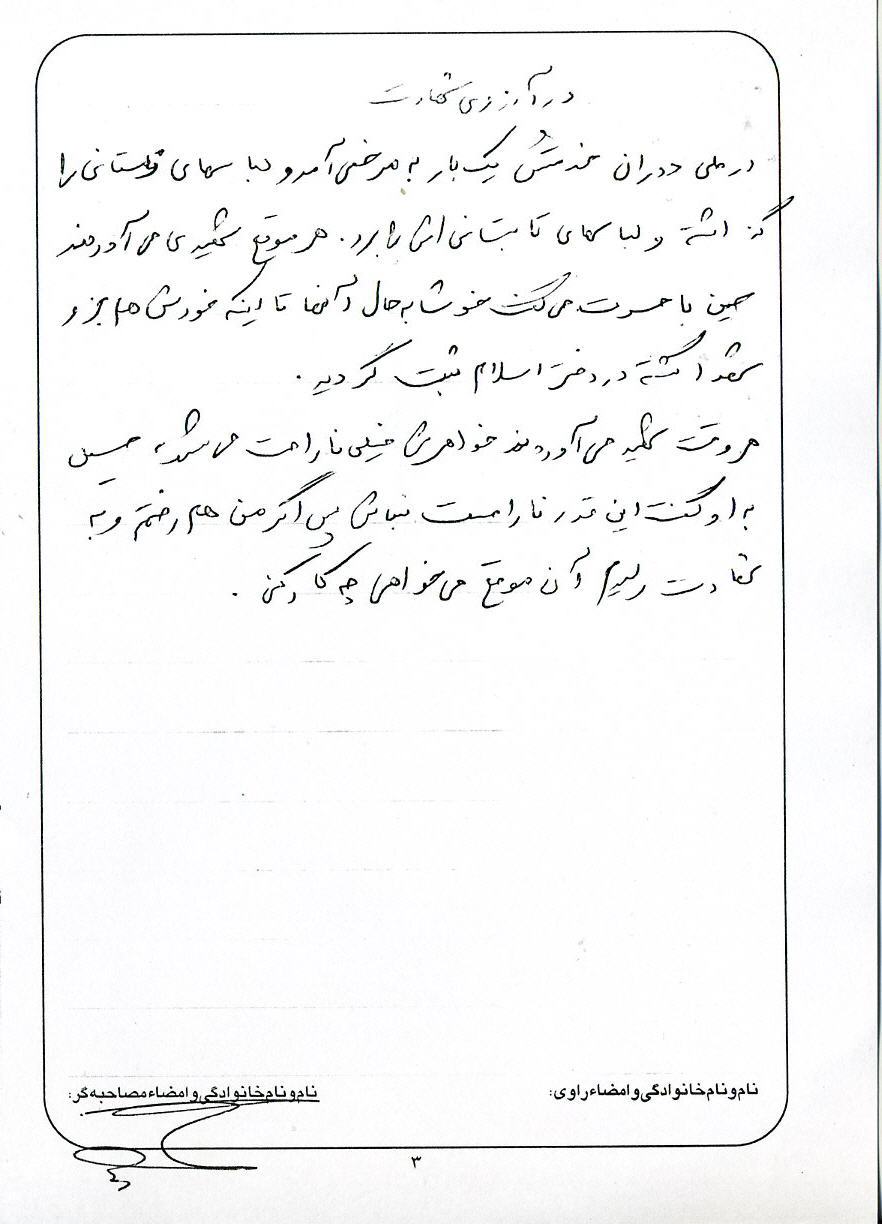 در آرزوی شهادت
در طی دوران خدمتش یک بار به مرخصی آمد و لباسهای زمستانی را
گذاشته و لباسهای تابستانی اش را برد. هر موقع شهیدی می آوردند
حسین با حسرت می گفت خوشا به حال آنها تا اینکه خودش هم جزو
شهدا گشته در دفتر اسلام ثبت گردید.
هر وقت شهید می آوردند خواهرش خیلی ناراحت می شد حسین
به او گفت این قدر ناراحت نباش پس اگر من هم رفتم و به
شهادت رسیدم آن موقع می خواهی چه کار کنی.
نام و نام خانوادگی و امضاء راوی:
نام و نام خانوادگی و امضاء مصاحبه گر:
۳